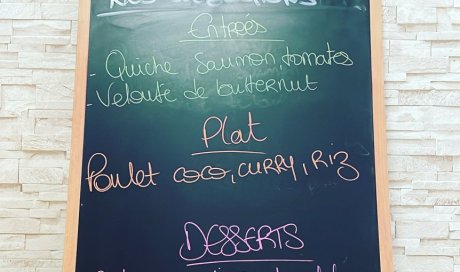 Entrées
- Quiche saumon, tomates
- Velouté de butternut
Plat
Poulet coco, curry, riz
DESSERTS